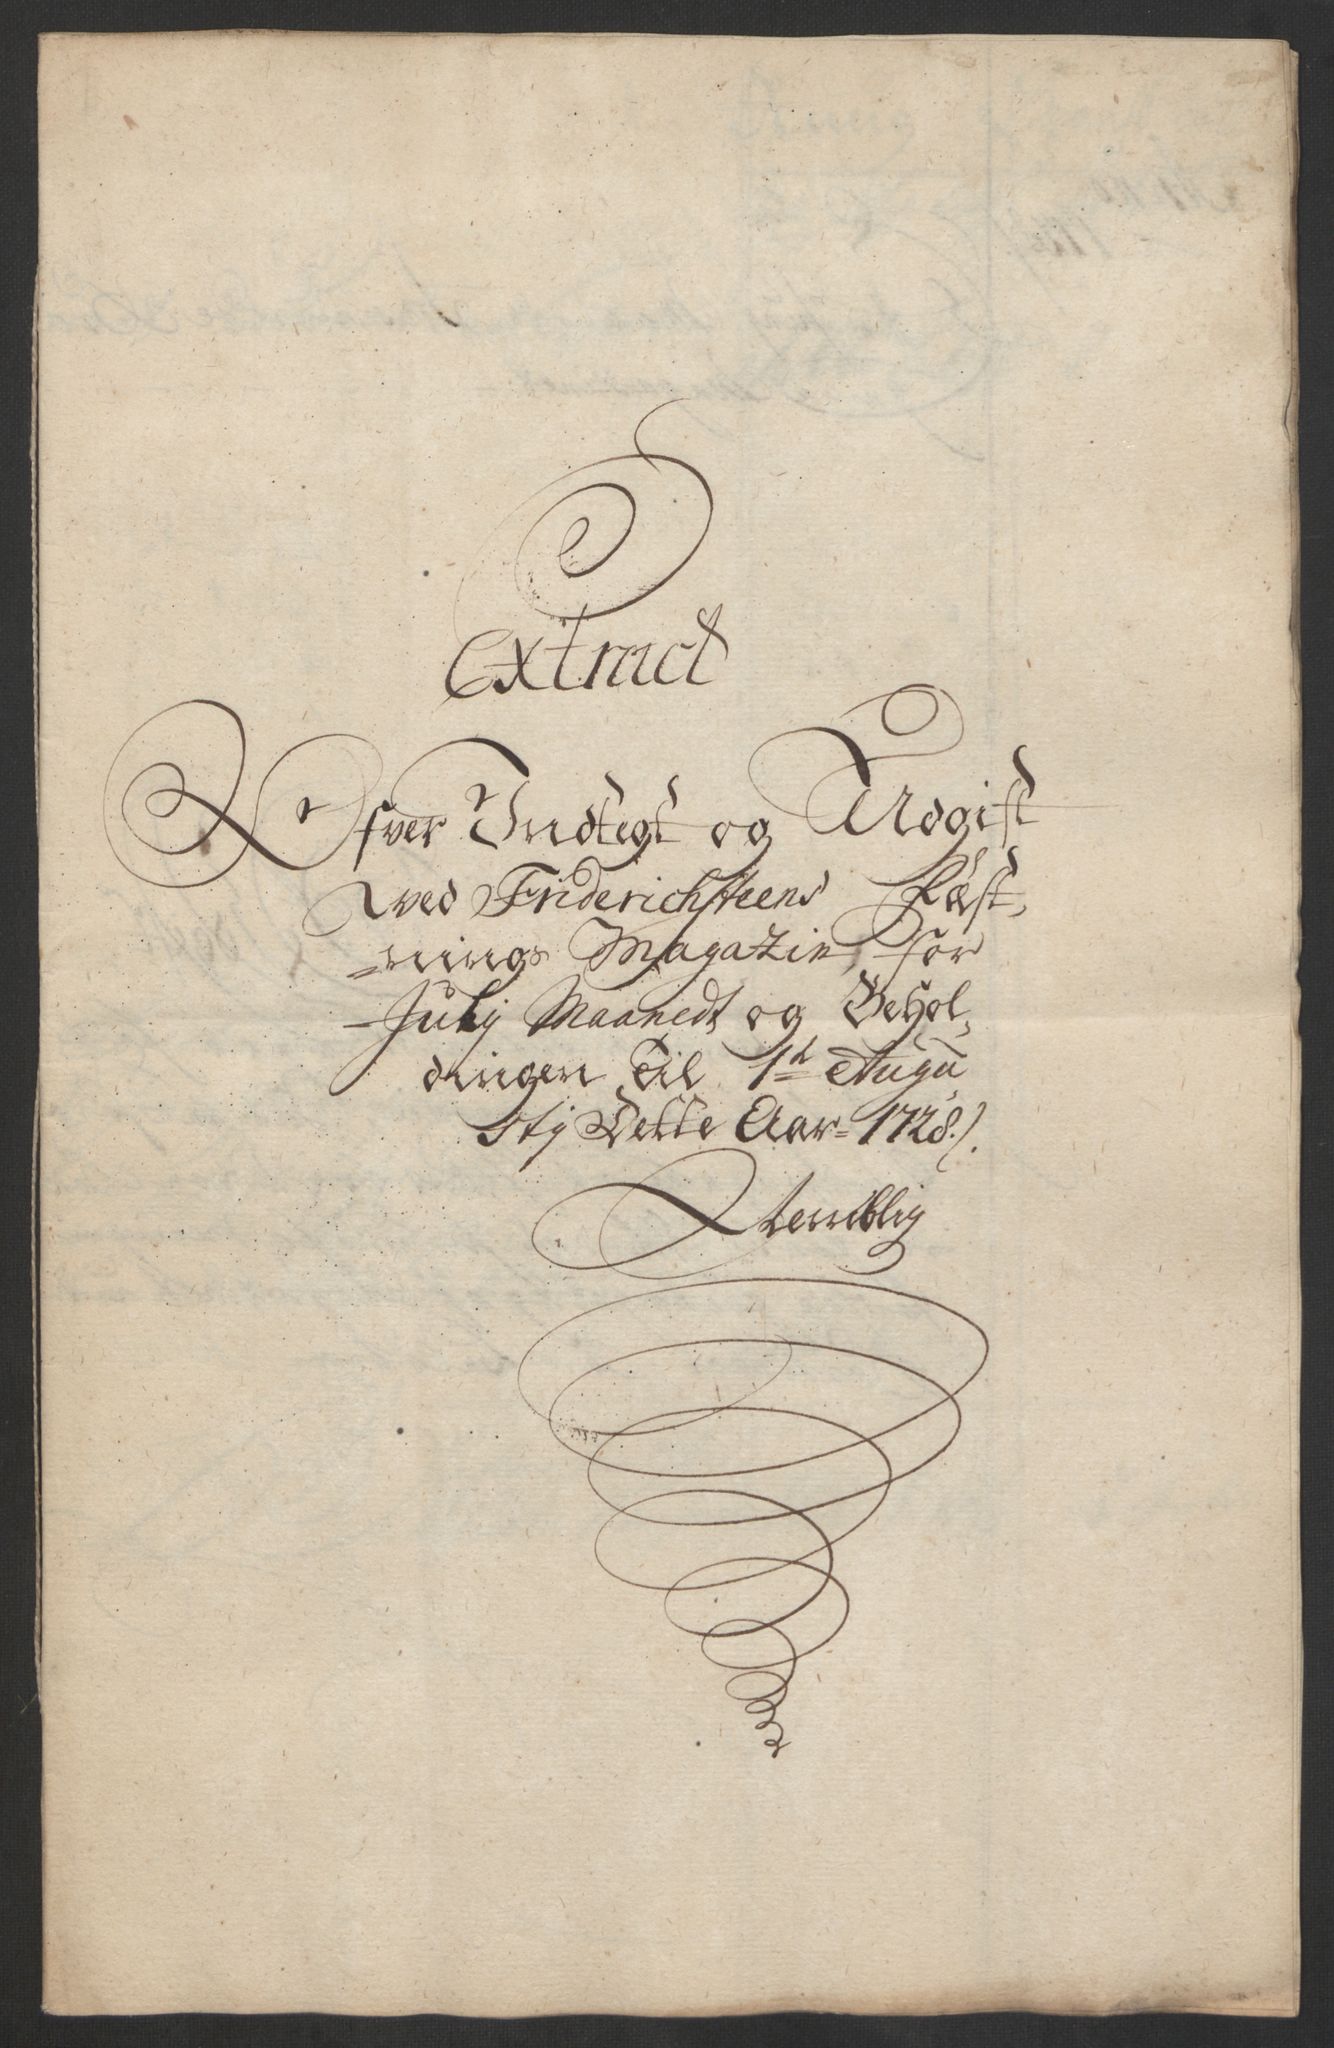 Extract
Ofver Indtegt og Udgift
ved Friderichsteens Fæst-
=nings Magazin, for
July Maanedt og Behol-
dingen Til 1d Augu
stij Dette Aar= 1728./.
Nemblig